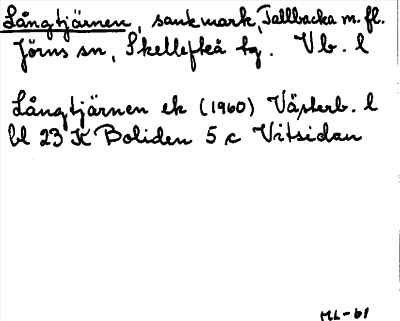 Långtjärnen, sankmark, Tallbacka m. fl.
Jörns sn, Skellefteå tg. Vb. l
Långtjärnen ek (1960) Västerb. l
bl 23 K Boliden 5 c Vitsidan
ML-61